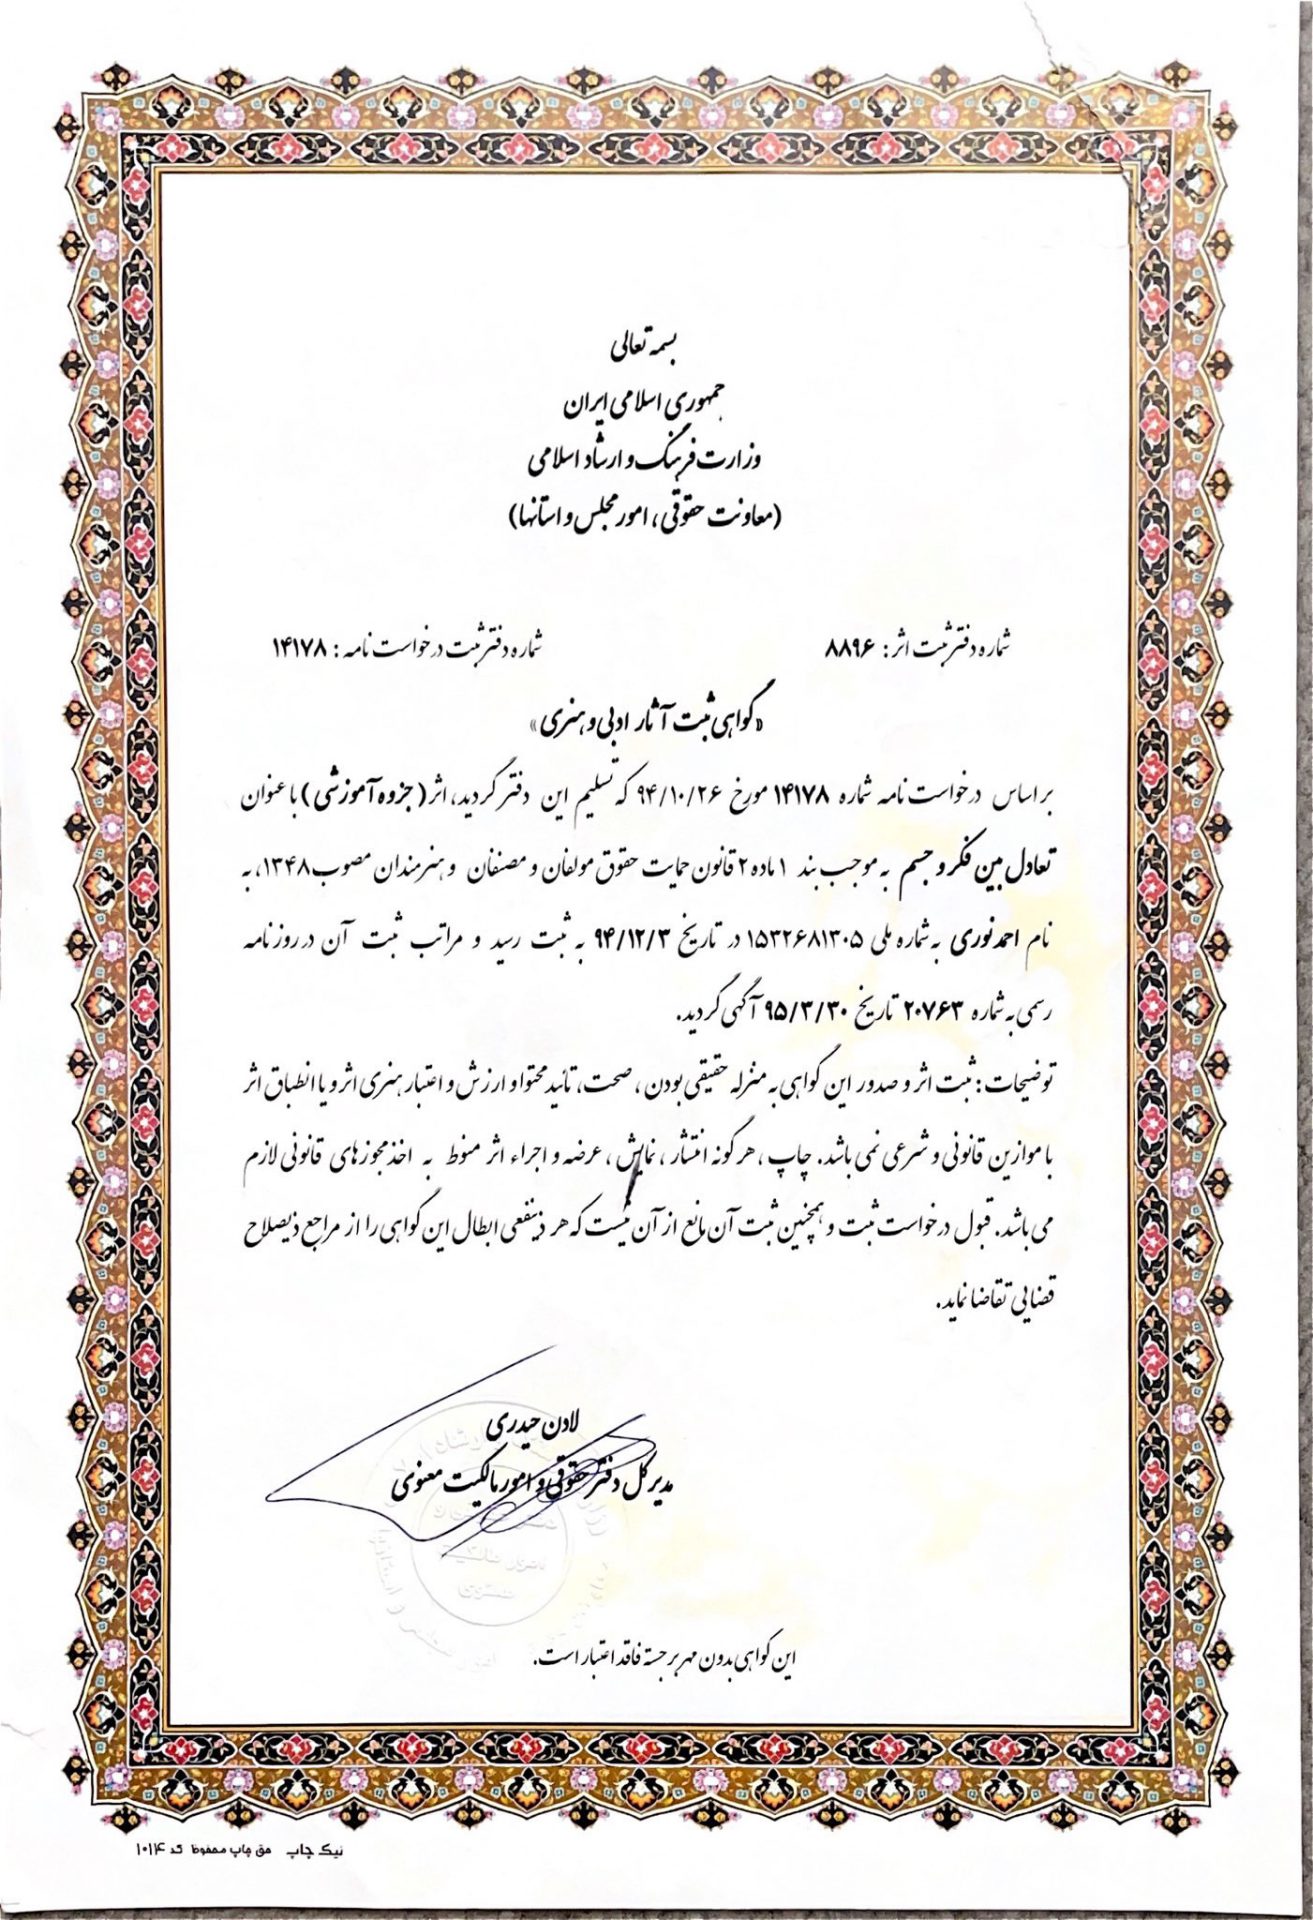 بسمه تعالی
جمهوری اسلامی ایران
وزارت فرهنگ و ارشاد اسلامی
(معاونت حقوقی، امور مجلس و استانها)
شماره دفتر ثبت اثر: ۸۸۹۶
شماره دفتر ثبت درخواست نامه: ۱۴۱۷۸
«گواهی ثبت آثار ادبی و هنری»
بر اساس درخواست نامه شماره ۱۴۱۷۸ مورخ ۹۴/۱۰/۲۶ که تسلیم این دفتر گردید، اثر (جزوه آموزشی) با عنوان
تعادل بین فکر و جسم به موجب بند ۱ ماده ۲ قانون حمایت حقوق مولفان و مصنفان و هنرمندان مصوب ۱۳۴۸، به
نام احمد نوری به شماره ملی ۱۵۳۲۶۸۱۳۰۵ در تاریخ ۹۴/۱۲/۳ به ثبت رسید و مراتب ثبت آن در روزنامه
رسمی به شماره ۲۰۷۶۳ تاریخ ۹۵/۳/۳۰ آگهی گردید.
توضیحات: ثبت اثر و صدور این گواهی به منزله حقیقی بودن، صحت، تائید محتوا و ارزش و اعتبار هنری اثر و یا انطباق اثر
با موازین قانونی و شرعی نمی باشد. چاپ، هر گونه انتشار، نمایش، عرضه و اجراء اثر منوط به اخذ مجوز های قانونی لازم
می باشد. قبول درخواست ثبت و همچنین ثبت آن مانع از آن نیست که هر ذینفعی ابطال این گواهی را از مراجع ذیصلاح
قضایی تقاضا نماید.
لادن حیدری
مدیر کل دفتر حقوقی و امور مالکیت معنوی
امور مالکیت
معنوی
این گواهی بدون مهر برجسته فاقد اعتبار است.
نیک چاپ حق چاپ محفوظ کد ۱۰۱۴